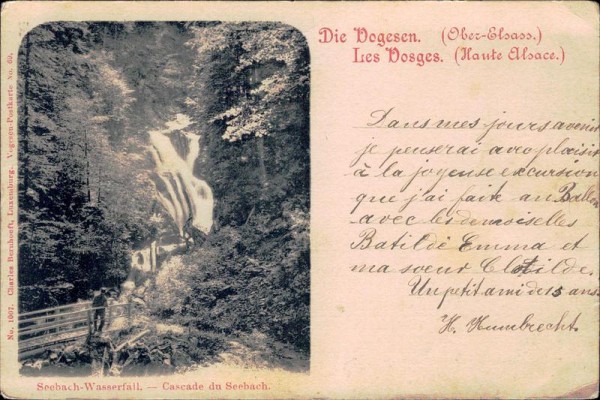 Die Vogesen. (Ober-Elsass.)
Les Vosges. (Haute Alsace.)
No. 1007. Charles Bernhoeft, Luxemburg. Vogesen-Postkarte No. 60.
Dans mes jours avenir
je penserai avo plaisir
à la joyeuse excursion
que j'ai faite au Ballon
avec les demoiselles
Batilde Emma et
ma soeur Clotilde.
Un petit ami de 5 ans.
H. Humbrecht.
Seebach-Wasserfall. — Cascade du Seebach.